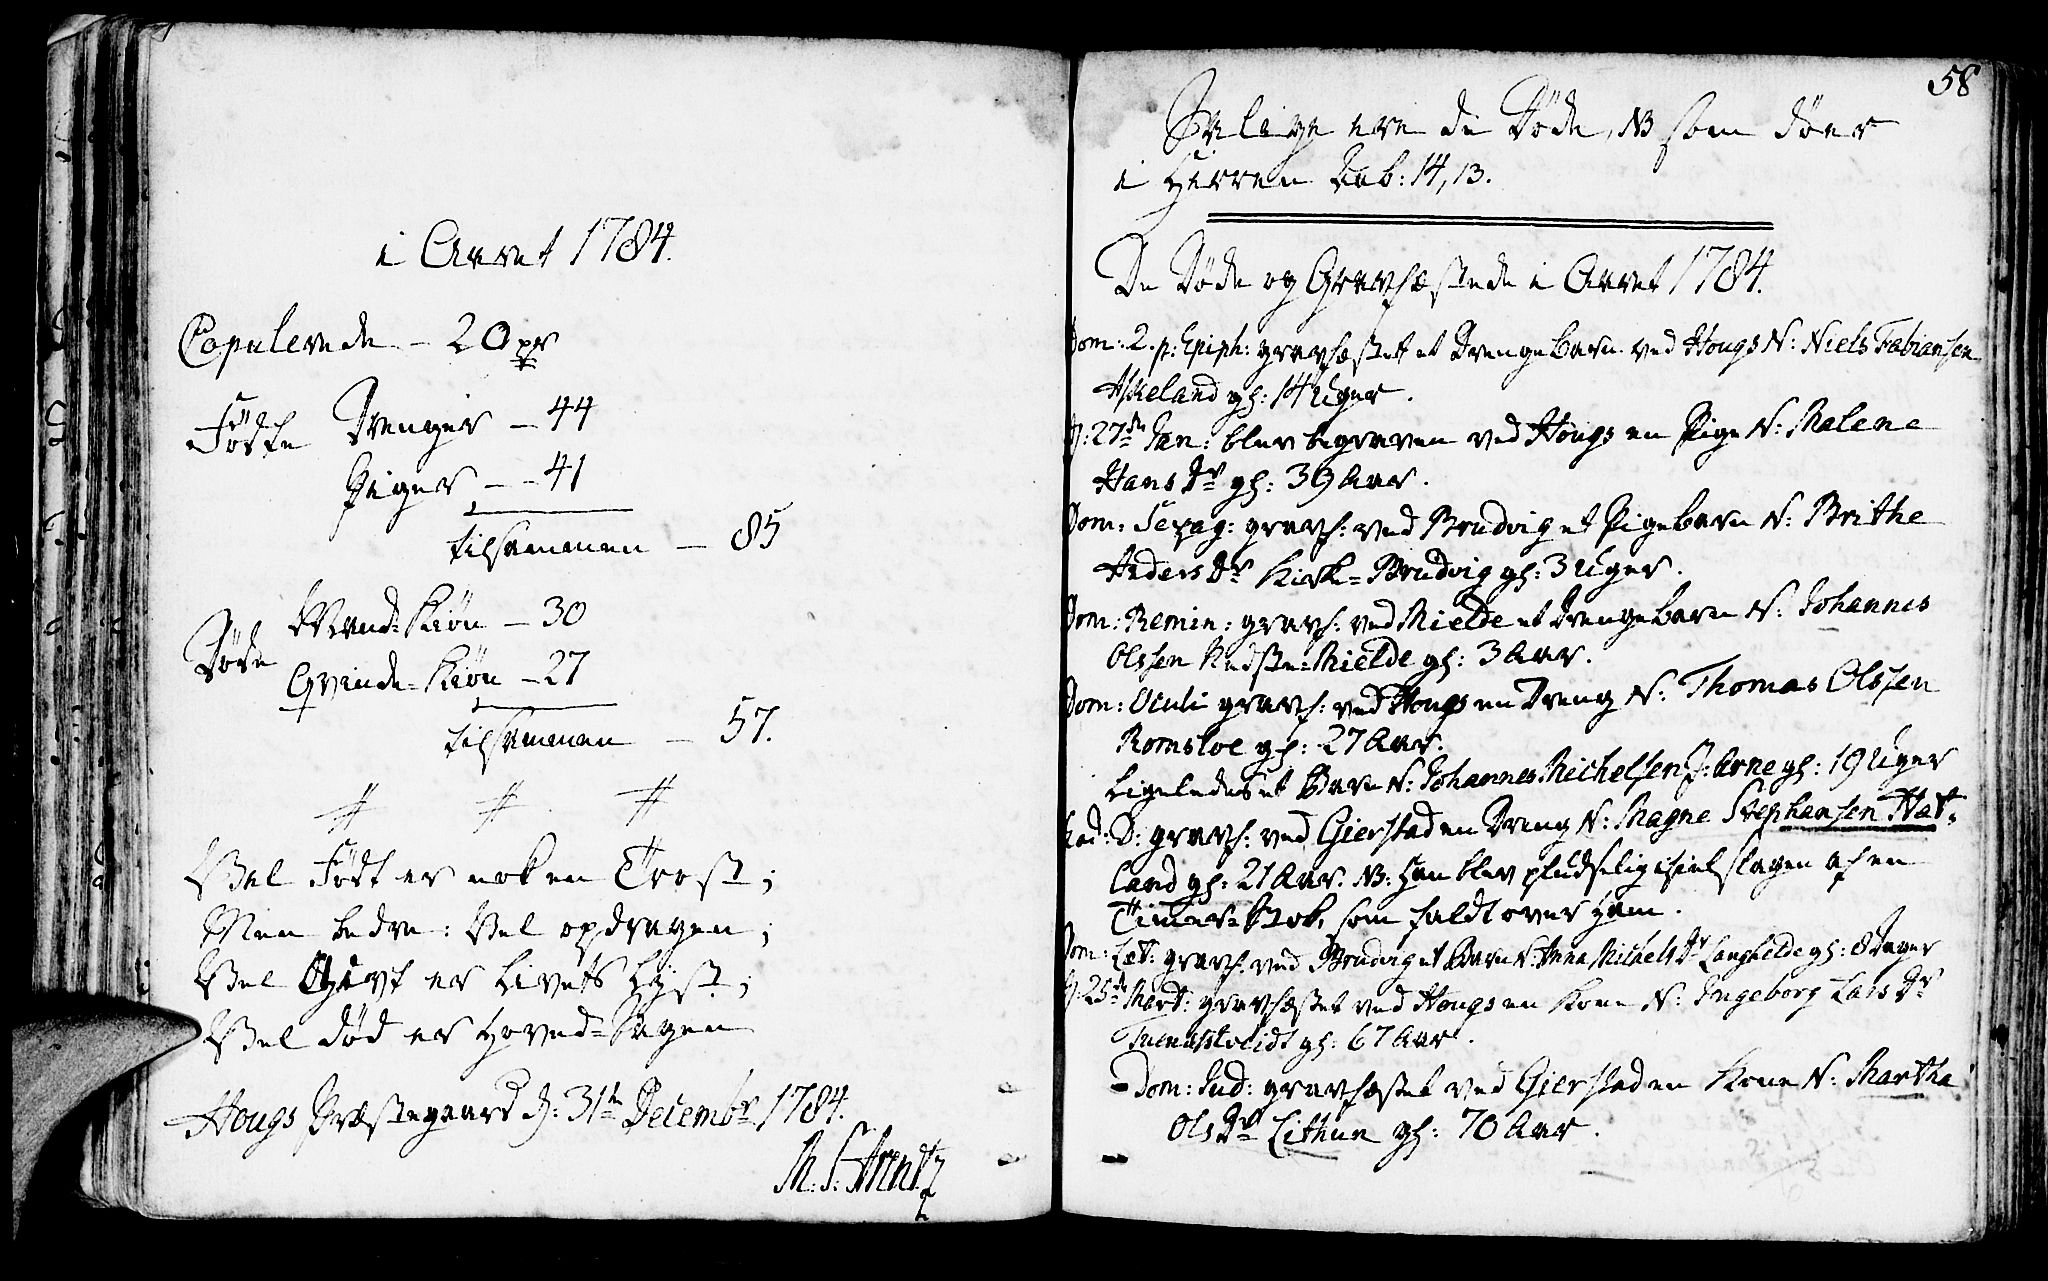 i Aaret 1784.
Copulerede - 20 pr
Födte Drenger - 44
Piger - - 41
tilsammen - 85
Döde Mand-Kiön - 30
Qvinde-Kiön - 27
tilsammen - 57.
# # #
Vel Födt er nok en Trost;
Men bedre: Vel opdragen;
Vel Givt er Livets Lyst;
Vel død er Hoved-Sagen
Hougs Præstegaard d: 31te Decembr 1784.
M: S: Arentz
58
Salige ere de Döde, NB som döer
i Herren Aab: 14, 13.
De Döde og Gravfæstede i Aaret 1784.
Dom: 2. p: Epiph: gravfæstet et Drengebarn ved Hougs N: Niels Fabiansen
Askeland gl: 14 Uger.
d: 27de Jan: blev begraven ved Hougs en Pige N: Malene
Hans Dr gl: 39 Aar.
Dom: Sexag: gravf: ved Brudvig et Pigebarn N: Brithe
Anders Dr Kirke-Brudvig gl: 3 Uger.
Dom: Remin: gravf: ved Mielde et Drengebarn N: Johannes
Olssen Mielde gl: 3 Aar.
Dom: Oculi gravf: ved Hougs en Dreng N: Thomas Olssen
Romsloe gl: 27 Aar.
Ligeledes et Barn N: Johannes Michelsen Arne gl: 19 Uger
Ead: D: gravf: ved Gierstad en Dreng N: Magne Stephansen Hat-
land gl: 21 Aar. NB: Han blev pludselig ihielslagen af en
Timmer-Stok, som faldt over Ham.
Dom: Læt: gravf: ved Brudvig et Barn N: Anna Michels Dr Langhelde gl: 8 Dager
d: 25de Mart: gravfæstet ved Hougs en Kone N: Ingeborg Lars Dr
gl: 67 Aar.
Dom: Jud: gravfæstet ved Gierstad en Kone N: Martha
Ols Dr Lithun gl: 70 Aar.